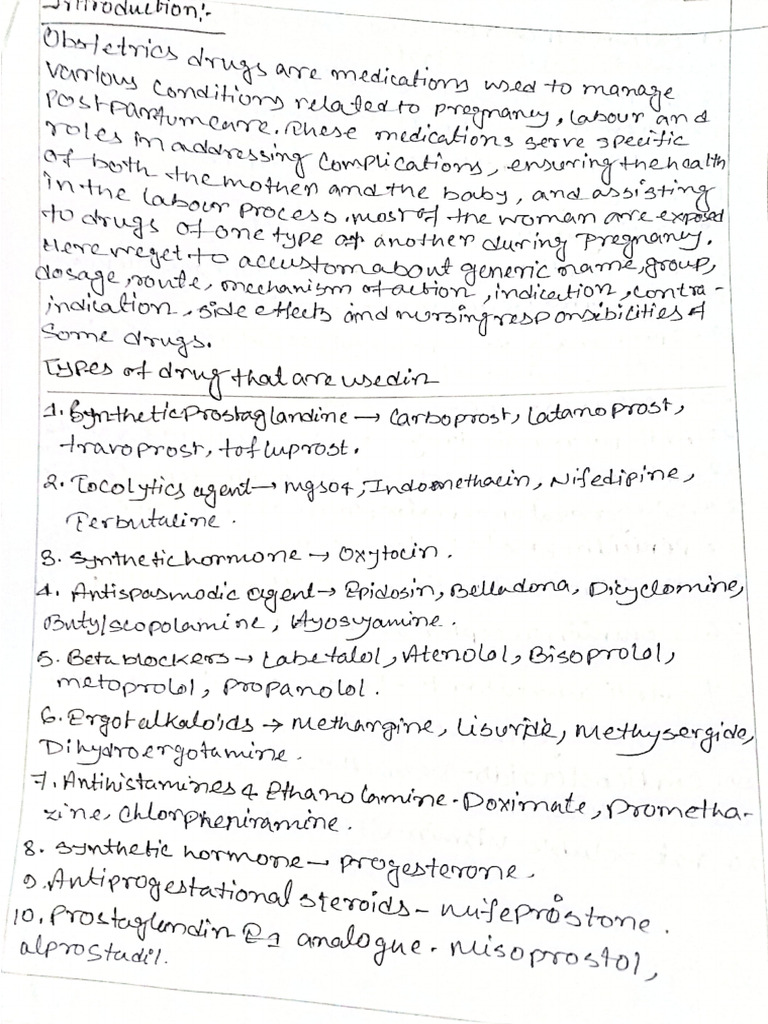 Introduction:-
Obstetrics drugs are medications used to manage
various conditions related to pregnancy, labour and
Postpartum care. These medications serve specific
roles in addressing complications, ensuring the health
of both the mother and the baby, and assisting
in the labour process. most of the woman are exposed
to drugs of one type or another during Pregnancy.
Here we get to accustom about generic name, group,
dosage, route, mechanism of action, indication, contra-
indication, side effects and nursing responsibilities of
Some drugs.
Types of drug that are used in
1. Synthetic Prostaglandine → Carboprost, Latanoprost,
travoprost, tofluprost.
2. Tocolytics agent → mgso4, Indomethacin, Nifedipine,
Terbutaline.
3. Synthetic hormone → Oxytocin.
4. Antispasmodic agent → Epidosin, Belladona, Dicyclomine,
Butylscopolamine, Hyosyamine.
5. Beta blockers → Labetalol, Atenolol, Bisoprolol,
metoprolol, Propanolol.
6. Ergot alkaloids → Methargine, Lisuride, Methysergide,
Dihydroergotamine.
7. Antihistamines & Ethanolamine - Doximate, Prometha-
zine, Chlorpheniramine.
8. Synthetic hormone → progesterone.
9. Antiprogestational steroids - mifeprostone.
10. Prostaglandin E1 analogue. Misoprostol,
alprostadil.